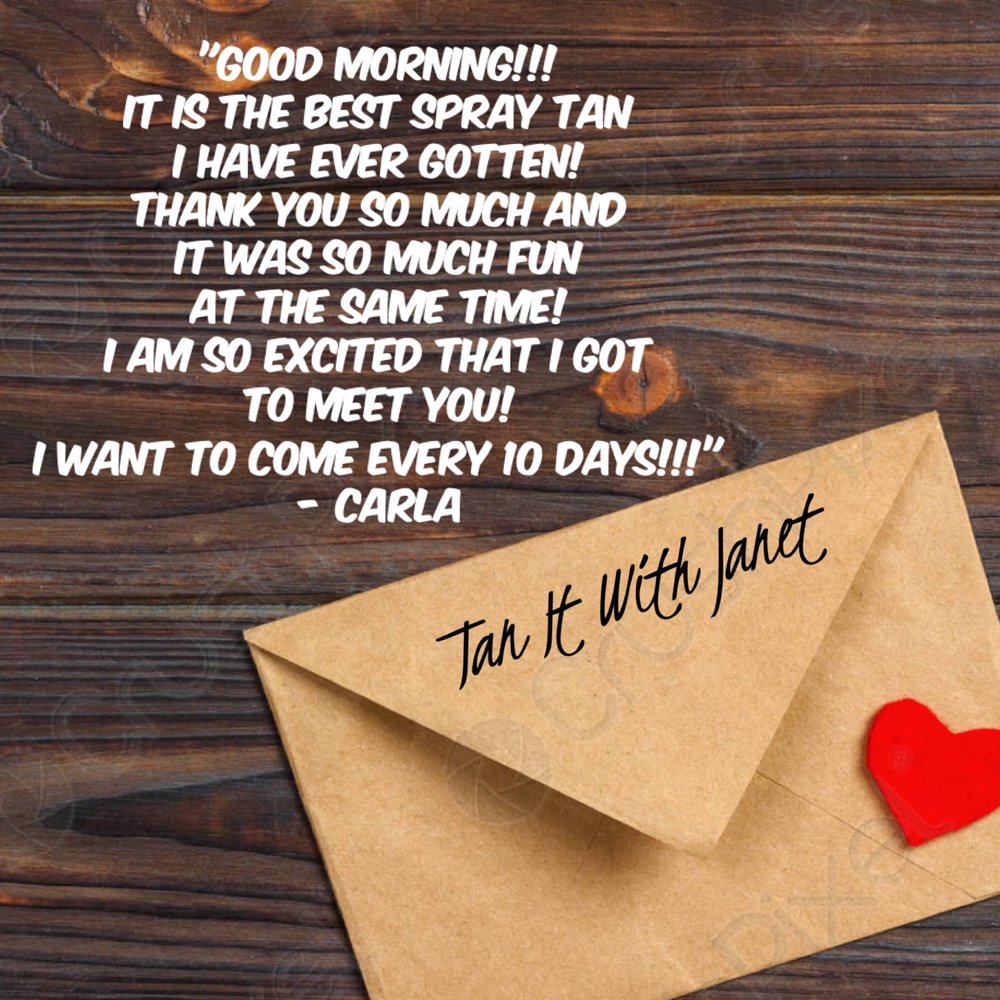 "GOOD MORNING!!!
IT IS THE BEST SPRAY TAN
I HAVE EVER GOTTEN!
THANK YOU SO MUCH AND
IT WAS SO MUCH FUN
AT THE SAME TIME!
I AM SO EXCITED THAT I GOT
TO MEET YOU!
I WANT TO COME EVERY 10 DAYS!!!"
- CARLA
Tan It With Janet